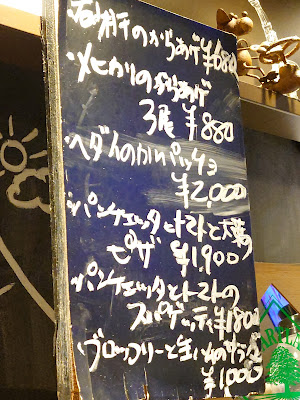 ・砂肝のからあげ ¥680
・メヒカリのからあげ
3尾 ¥880
・ヘダイのカルパッチョ
¥2,000
・パンチェッタとトマトと大葉の
ピザ ¥1,900
・パンチェッタとトマトの
スパゲッティ ¥180
・ブロッコリーと生ハムのサラダ
¥1,000